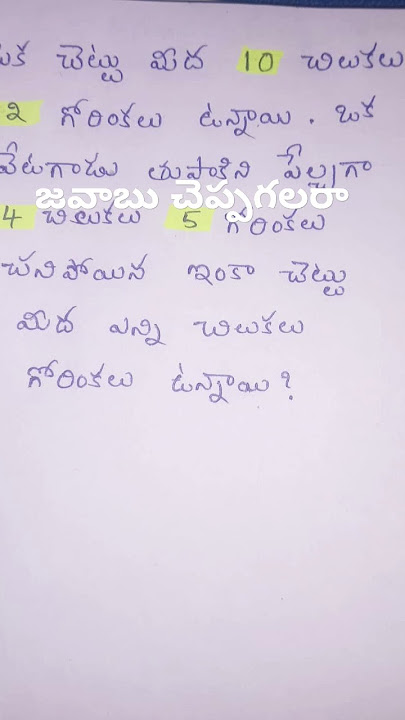 ఒక చెట్టు మీద 10 చిలుకలు
2 గోరింకలు ఉన్నాయి. ఒక
వేటగాడు తుపాకిని పేల్చగా
జవాబు చెప్పగలరా
4 చిలుకలు 5 గోరింకలు
చనిపోయిన ఇంకా చెట్టు
మీద ఎన్ని చిలుకలు
గోరింకలు ఉన్నాయి?